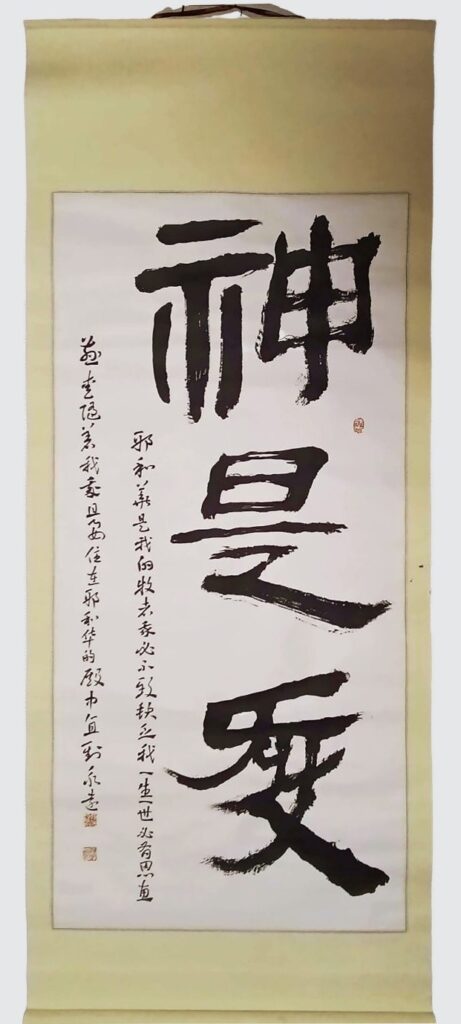 神是爱
耶和華是我的牧者我必不致缺乏我一生一世必有恩惠
慈爱随着我我且要住在耶和华的殿中直到永遠